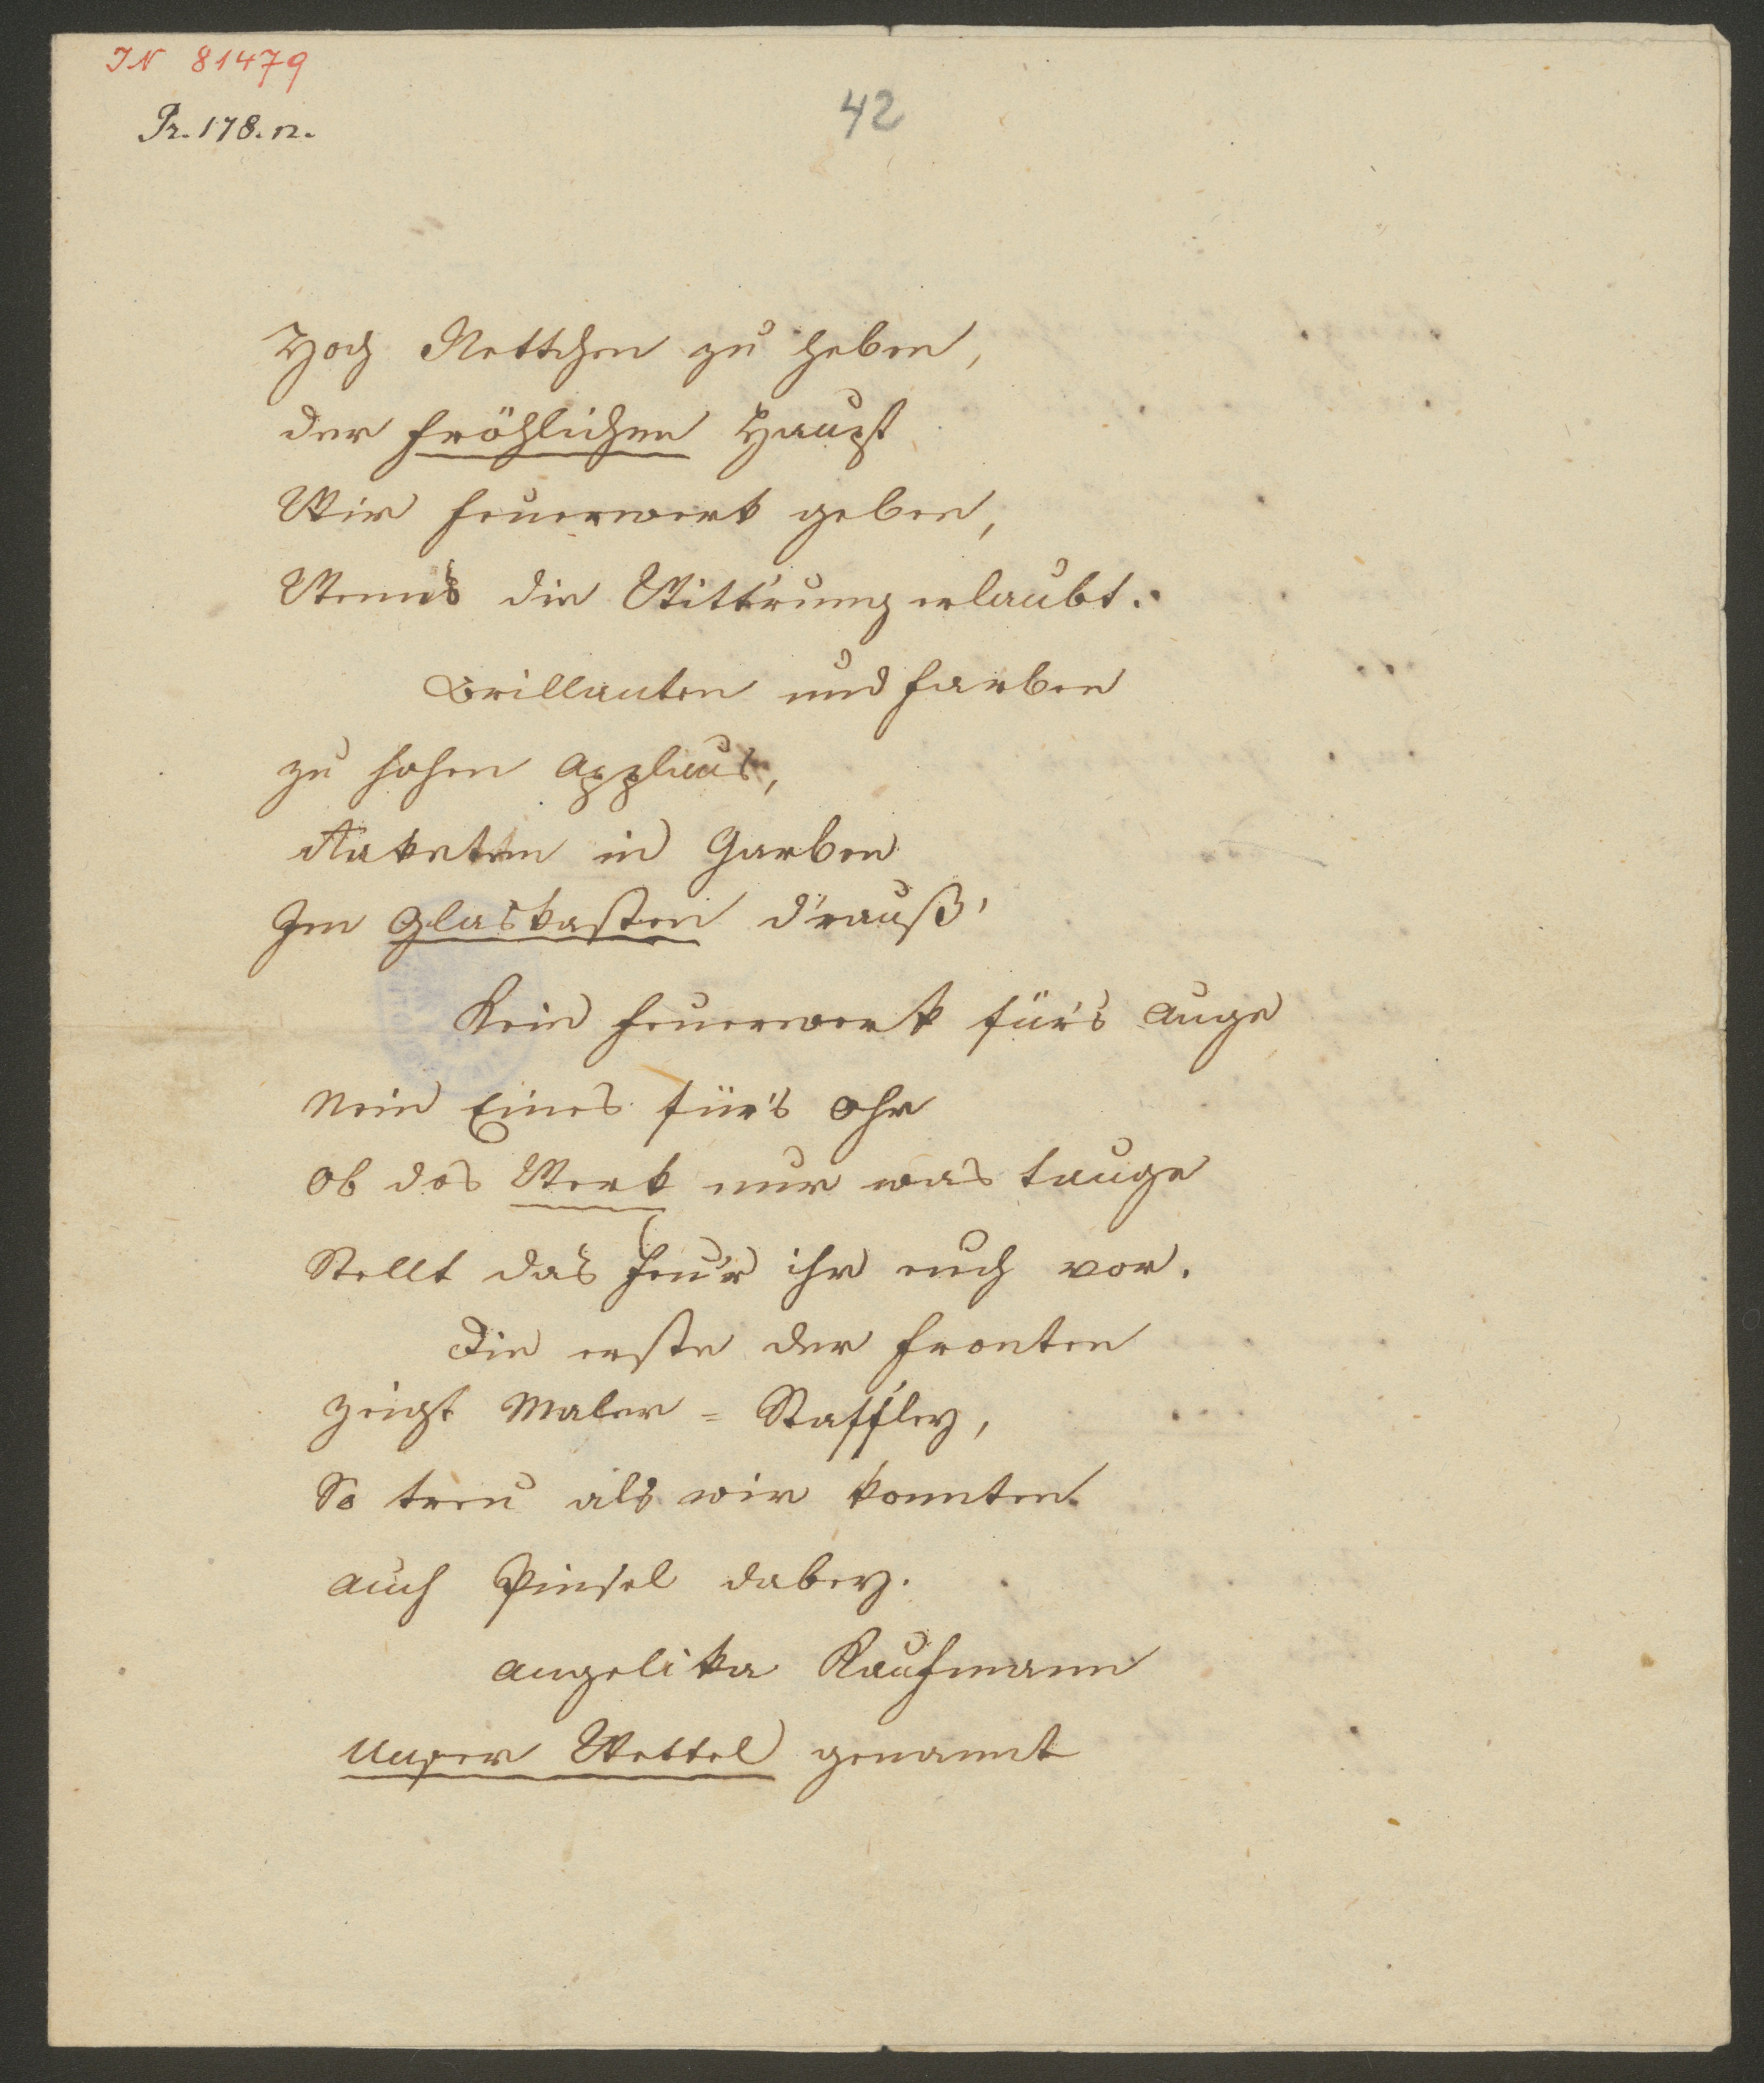 IN 81479
Pr. 178. n.
42
Hoch Nettchen zu heben,
der fröhlichen Haupt
Wir Feuerwerk geben,
Wenn's die Witt'rung erlaubt.
Brillanten und Farben
zu hohen Applaus,
Raketen in Garben
Im Glaskasten d'rauß'
Kein Feuerwerk für's Auge
Nein Eines für's Ohr
Ob das Werk nur was tauge
Stellt das Feu'r ihr euch vor.
Die erste der Fronten
zeigt Maler = Staff'ley,
So treu als wir konnten
auch Pinsel dabey.
Angelika Kaufmann
Unser Wettel genannt